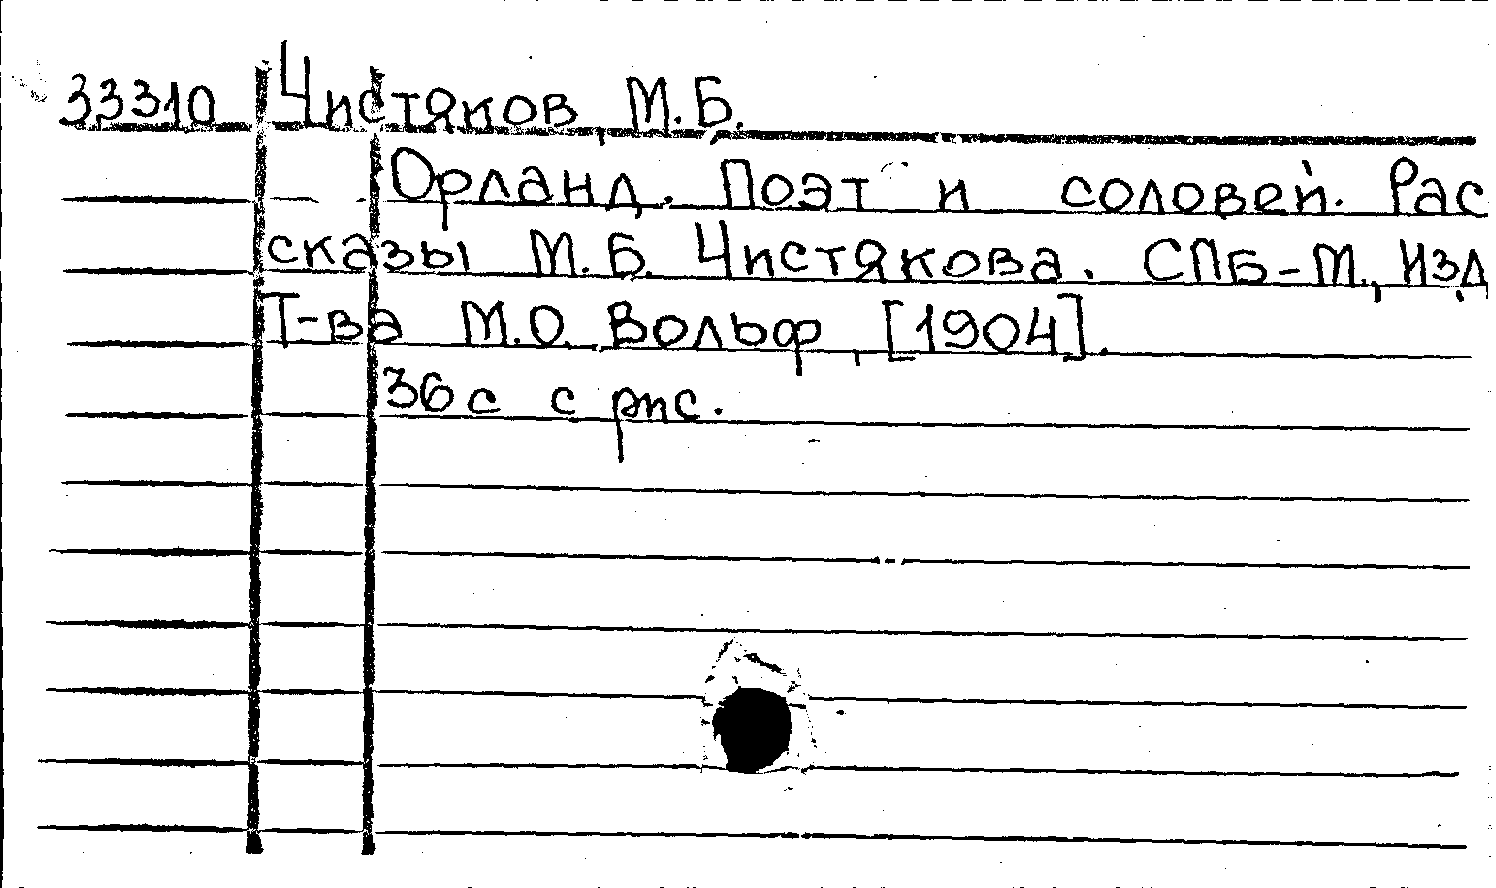 33310 Чистяков, М.Б.
Орланд. Поэт и соловей. Рас
сказы М.Б. Чистякова. СПБ-М., Изд.
Т-ва М.О. Вольф, [1904].
36с с рис.